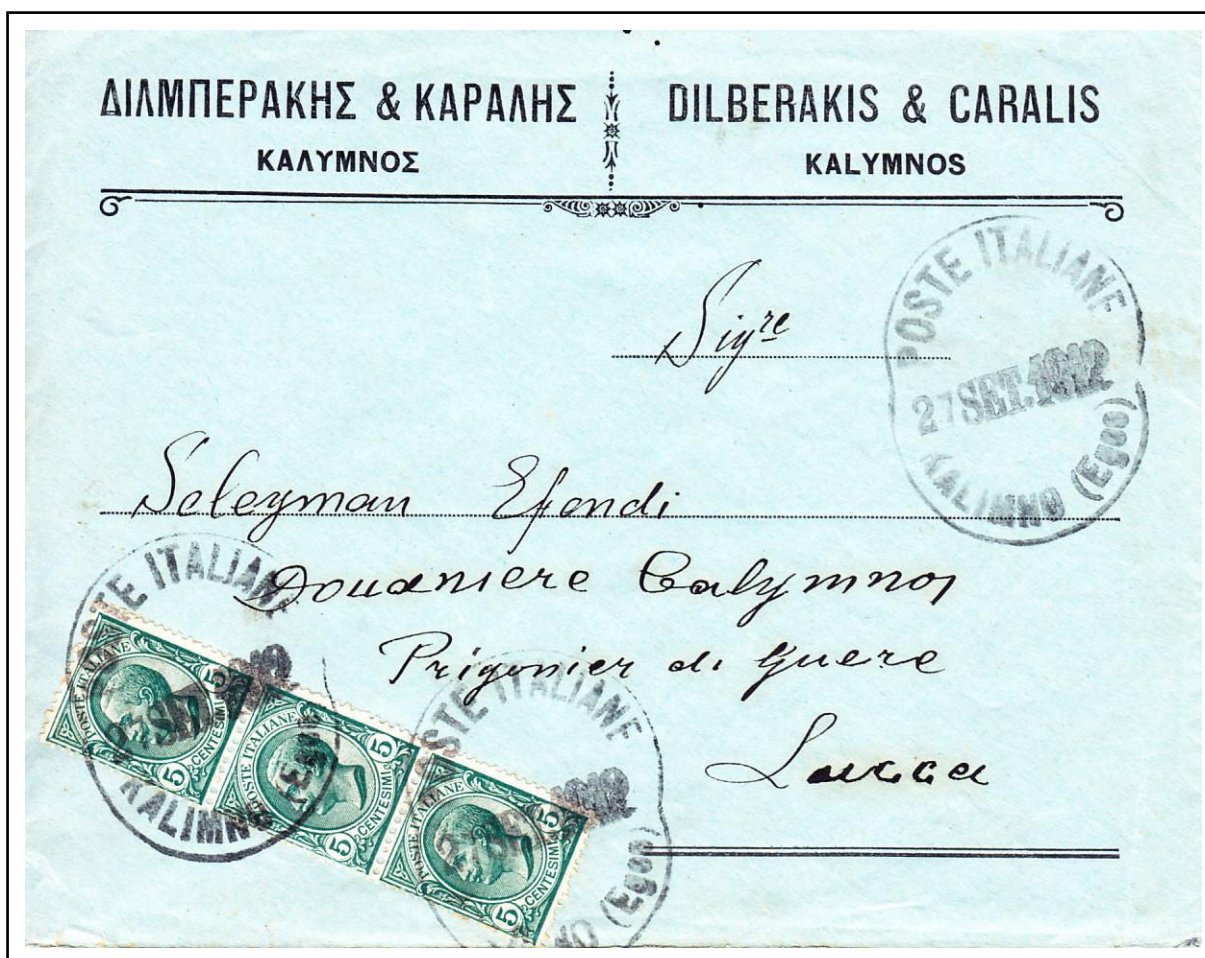 ΔΙΛΜΠΕΡΑΚΗΣ & ΚΑΡΑΛΗΣ
ΚΑΛΥΜΝΟΣ
DILBERAKIS & CARALIS
KALYMNOS
POSTE ITALIANE
27 SET. 1912
KALIMNO (Egeo)
Sigre
Seleyman Efendi
Douaniere Calymnos
Prigonier di guere
Lucca
POSTE ITALIANE
KALIMNO
POSTE ITALIANE
5 CENTESIMI 5
POSTE ITALIANE
5 CENTESIMI 5
POSTE ITALIANE
5 CENTESIMI 5
POSTE ITALIANE
(Egeo)